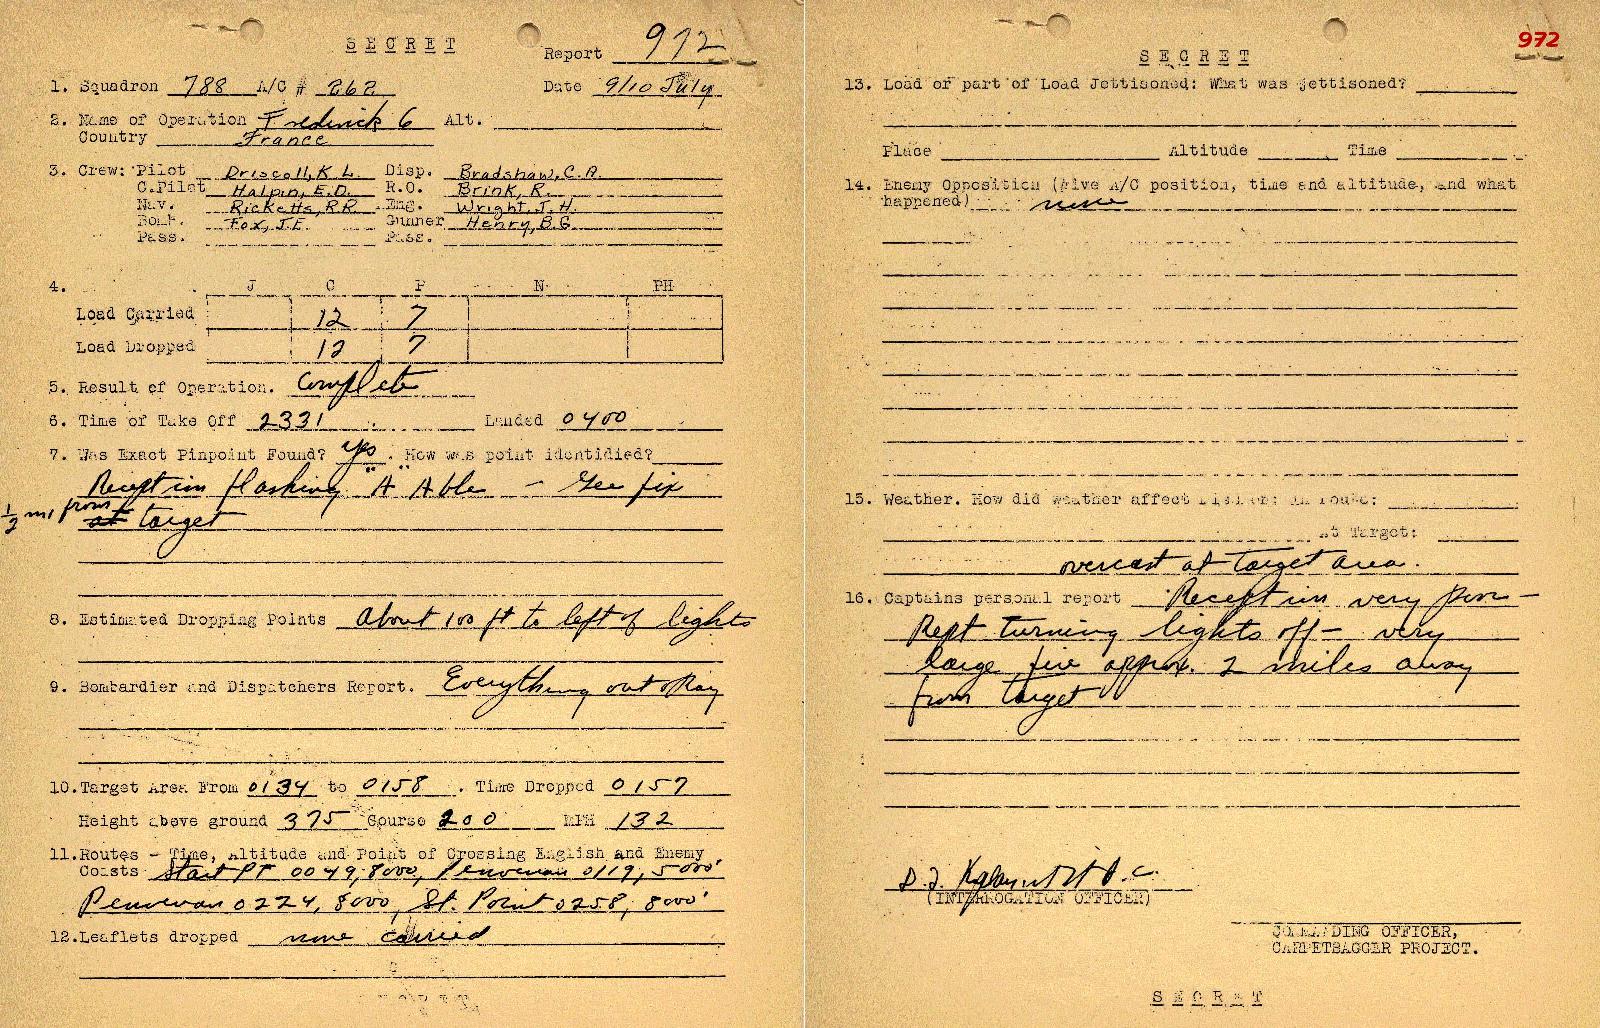 SECRET
Report 972
1. Squadron 788 A/C # 262 Date 9/10 July
2. Name of Operation Frederick 6 Alt.
Country France
3. Crew: Pilot Driscoll, K.L. Disp. Bradshaw, C.A.
C.Pilot Halpin, E.D. R.O. Brink, R.
Nav. Ricketts, R.R. Eng. Wright, J.H.
Bomb. Fox, J.E. Gunner Henry, B.G.
Pass. Pass.
4. J C P N PH
Load Carried 12 7
Load Dropped 12 7
5. Result of Operation. Complete
6. Time of Take Off 2331 Landed 0400
7. Was Exact Pinpoint Found? yes. How was point identidied?
Reception flashing "A" Able - Gee fix
1/2 mi from
at target
8. Estimated Dropping Points About 100 ft to left of lights
9. Bombardier and Dispatchers Report. Everything out okay
10. Target Area From 0134 to 0158. Time Dropped 0157
Height above ground 375 Course 200 MPH 132
11. Routes - Time, Altitude and Point of Crossing English and Enemy
Coasts Start PT 0049, 8000, Penvenan 0119, 5000'
Penvenan 0224, 8000, St. Point 0258, 8000'
12. Leaflets dropped none carried
972
SECRET
13. Load or part of Load Jettisoned: What was jettisoned?
Place Altitude Time
14. Enemy Opposition (Give A/C position, time and altitude, and what
happened) none
15. Weather. How did weather affect mission: In route:
At Target:
overcast at target area.
16. Captains personal report Reception very poor -
Kept turning lights off - very
large fire approx. 2 miles away
from target
(INTERROGATION OFFICER)
COMMANDING OFFICER,
CARPETBAGGER PROJECT.
SECRET